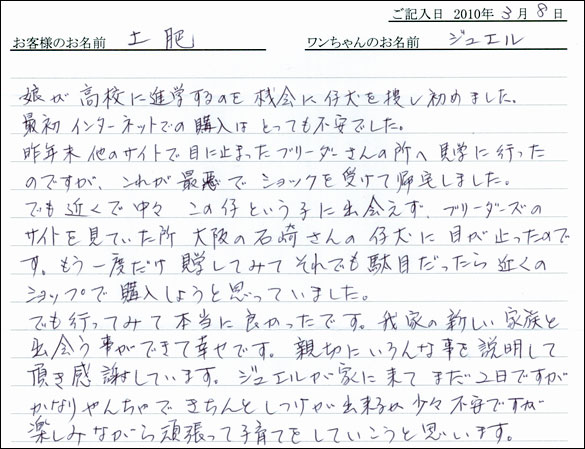 ご記入日 2010年 3月 8日
お客様のお名前 土肥 ワンちゃんのお名前 ジュエル
娘が高校に進学するのを機会に仔犬を捜し初めました。
最初インターネットでの購入はとっても不安でした。
昨年末他のサイトで目に止まったブリーダーさんの所へ見学に行った
のですが、これが最悪でショックを受けて帰宅しました。
でも近くで中々この仔という子に出会えず、ブリーダーズの
サイトを見ていた所大阪の石崎さんの仔犬に目が止ったので
す。もう一度だけ見学してみてそれでも駄目だったら近くの
ショップで購入しようと思っていました。
でも行ってみて本当に良かったです。我家の新しい家族と
出会う事ができて幸せです。親切にいろんな事を説明して
頂き感謝しています。ジュエルが家に来てまだ2日ですが
かなりやんちゃできちんとしつけが出来るか少々不安ですが
楽しみながら頑張って子育てをしていこうと思います。